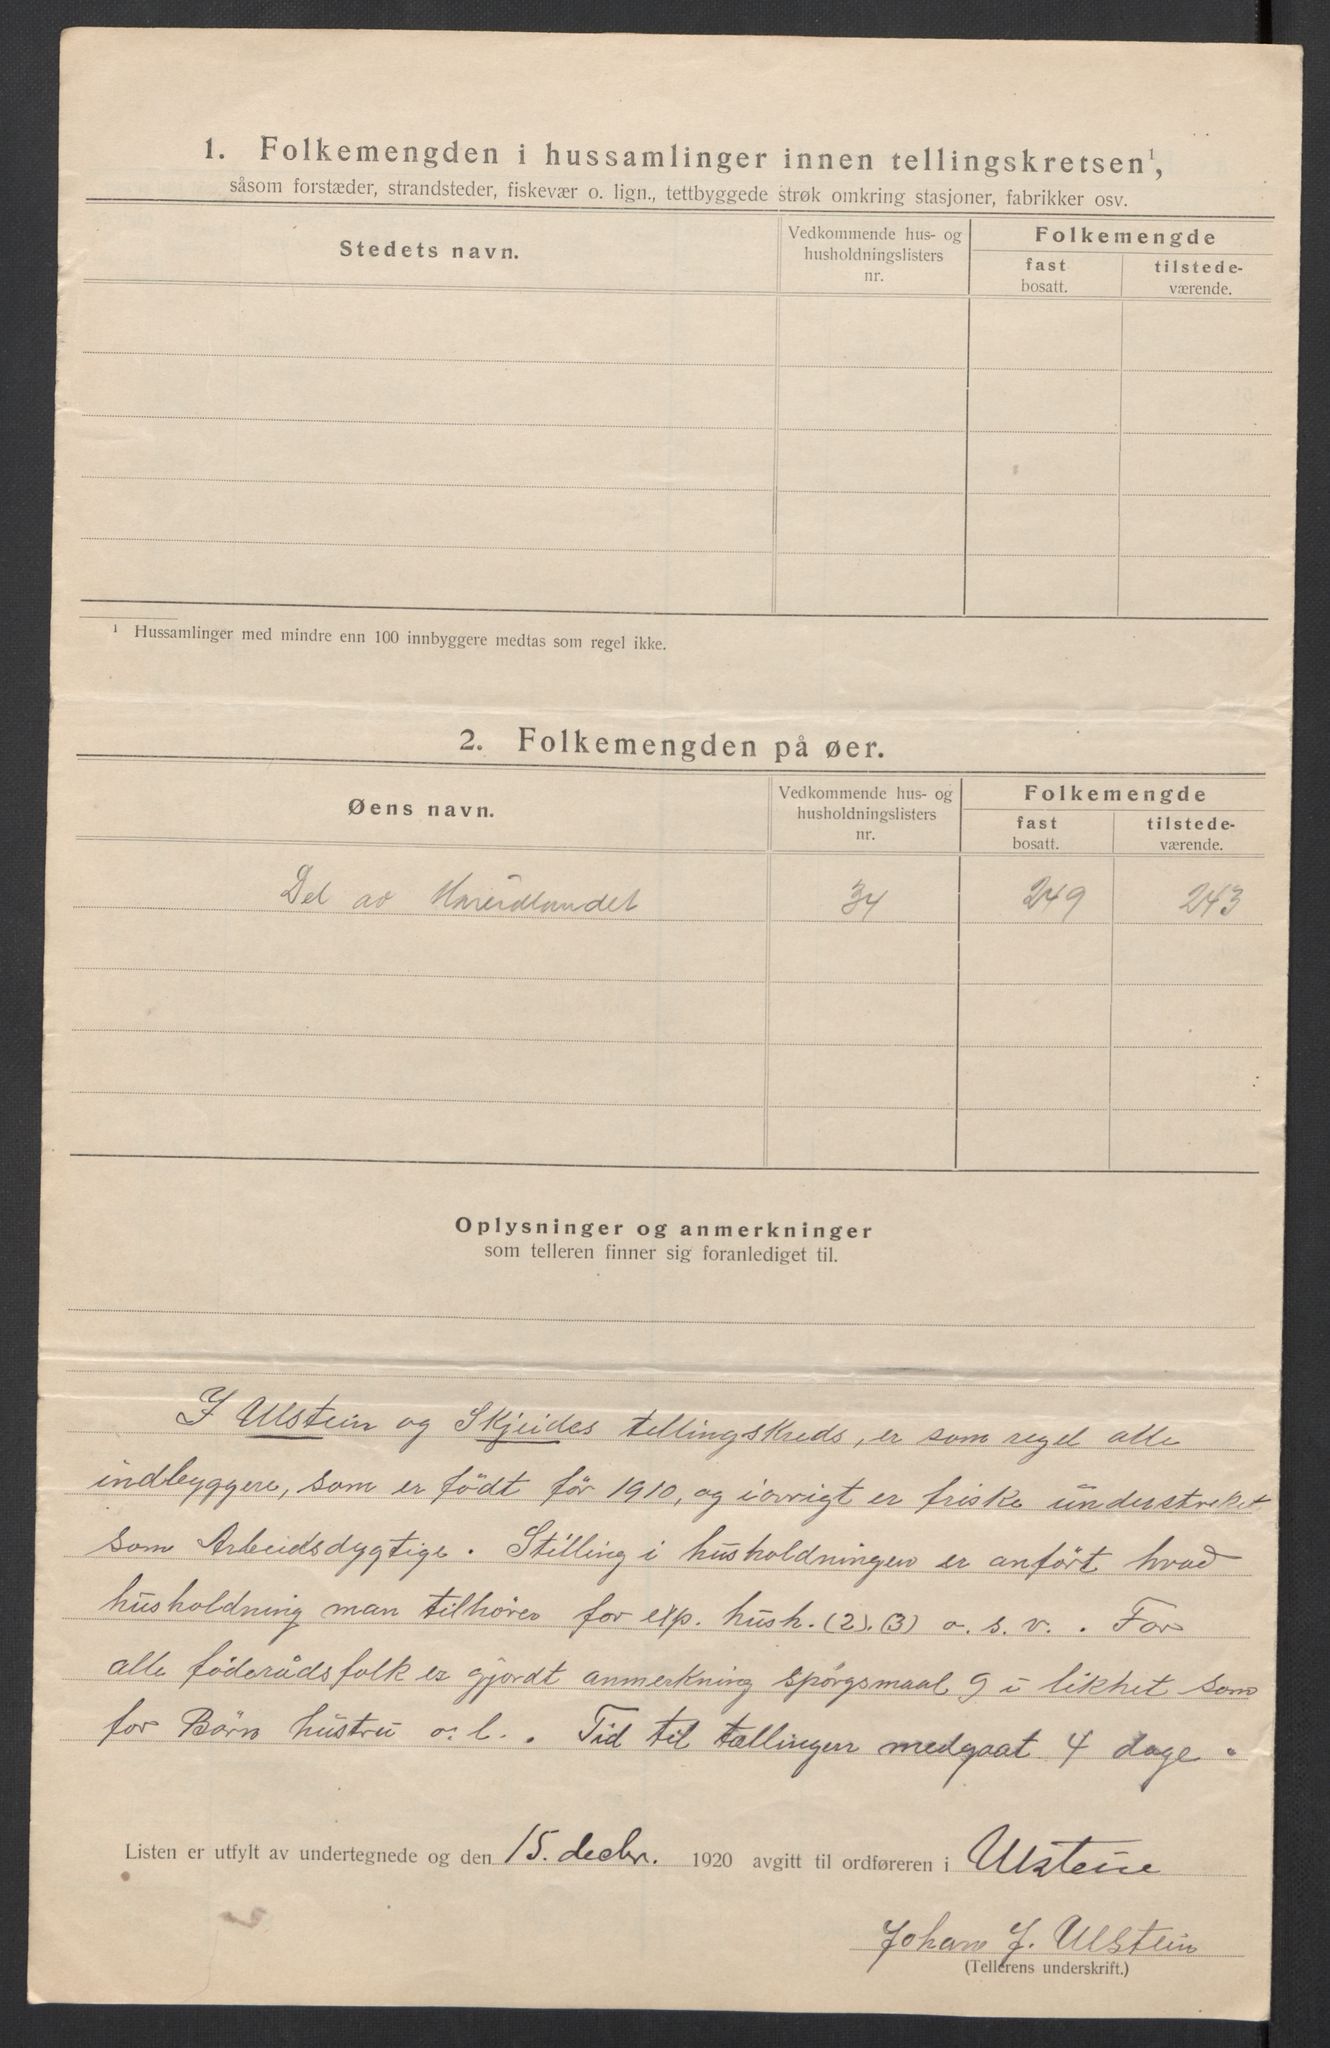 1. Folkemengden i hussamlinger innen tellingskretsen¹,
såsom forstæder, strandsteder, fiskevær o. lign., tettbyggede strøk omkring stasjoner, fabrikker osv.
Stedets navn.
Vedkommende hus- og
husholdningslisters
nr.
Folkemengde
fast
bosatt.
tilstede-
værende.
¹ Hussamlinger med mindre enn 100 innbyggere medtas som regel ikke.
2. Folkemengden på øer.
Øens navn.
Vedkommende hus- og
husholdningslisters
nr.
Folkemengde
fast
bosatt.
tilstede-
værende.
Del av Hareidlandet 34 249 243
Oplysninger og anmerkninger
som telleren finner sig foranlediget til.
I Ulstein og Skjeides tellingskreds, er som regel alle
indbyggere, som er födt för 1910, og iøvrigt er friske understreket
som Arbeidsdygtige. Stilling i husholdningen er anført hvad
husholdning man tilhörer for exp. hush. (2). (3) o. s. v. . For
alle föderådsfolk er gjordt anmerkning spörgsmaal 9 i likhet som
for Börn hustru o. l. . Tid til tællingen medgaat 4 dage.
Listen er utfylt av undertegnede og den 15. decbr. 1920 avgitt til ordføreren i Ulstein
Johan J. Ulstein
(Tellerens underskrift.)